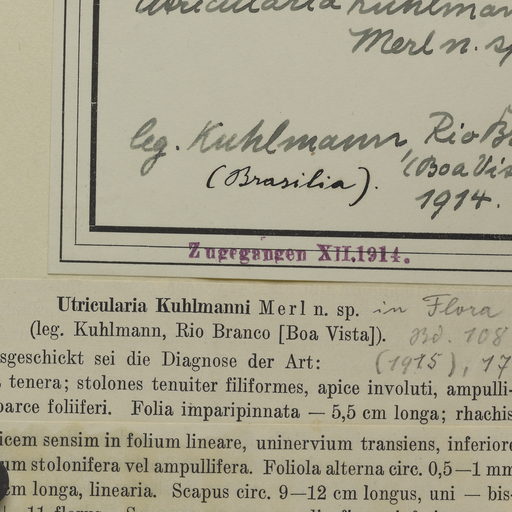 Utricularia Kuhlman
Merl n. sp
leg. Kuhlmann, Rio B
(Boa Vis
(Brasilia).
1914.
Zugegangen XII.1914.
Utricularia Kuhlmanni Merl n. sp. in Flora
(leg. Kuhlmann, Rio Branco [Boa Vista]). Bd. 108
sgeschickt sei die Diagnose der Art: (1915), 17
tenera; stolones tenuiter filiformes, apice involuti, ampulli-
parce foliiferi. Folia imparipinnata — 5,5 cm longa; rhachis
icem sensim in folium lineare, uninervium transiens, inferiore
um stolonifera vel ampullifera. Foliola alterna circ. 0,5—1 mm
cm longa, linearia. Scapus circ. 9—12 cm longus, uni — bis-